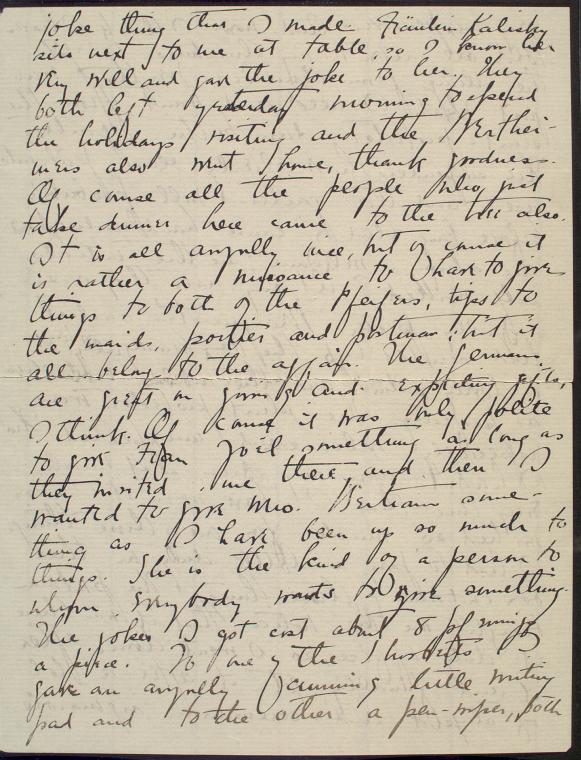 joke thing that I made. Fräulein Kalisky
sits next to me at table, so I know her
very well and gave the joke to her. They
both left yesterday morning to spend
the holidays visiting and the Werthei-
mers also went home, thank goodness.
Of course all the people who just
take dinner here came to the tree also.
It is all awfully nice, but of course it
is rather a nuisance to have to give
things to both of the Pfeifers, tips to
the maids, portier and postman; but it
all belongs to the affair. The Germans
are great on giving and expecting gifts,
I think. Of course it was only polite
to give Frau Joël something as long as
they invited me there, and then I
wanted to give Mrs. Bertram some-
thing as I have been up so much to
things. She is the kind of a person to
whom everybody wants to give something.
The jokes I got cost about 8 pfennigs
a piece. To one of the I
gave an awfully cunning little writing
pad and to the other a pen-wiper, both